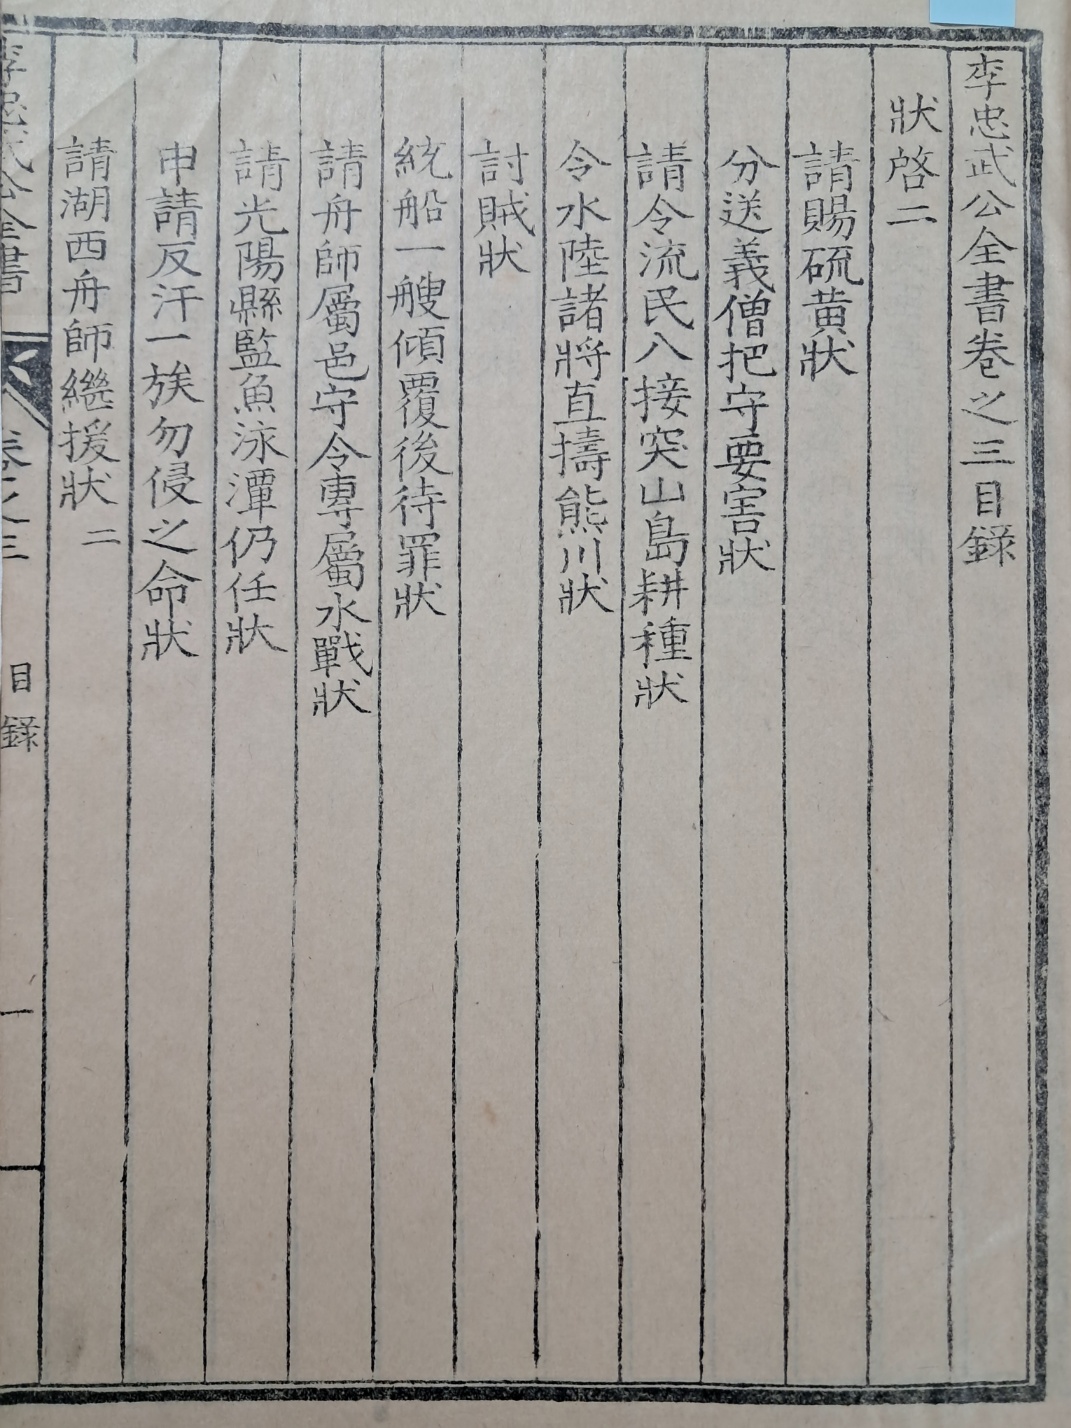 李忠武公全書卷之三目錄
狀啓二
請賜硫黃狀
分送義僧把守要害狀
請令流民入接突山島耕種狀
令水陸諸將直擣熊川狀
討賊狀
統船一艘傾覆後待罪狀
請舟師屬邑守令專屬水戰狀
請光陽縣監魚泳潭仍任狀
申請反汗一族勿侵之命狀
請湖西舟師繼援狀 二
李忠武公全書 卷之三 目錄 一